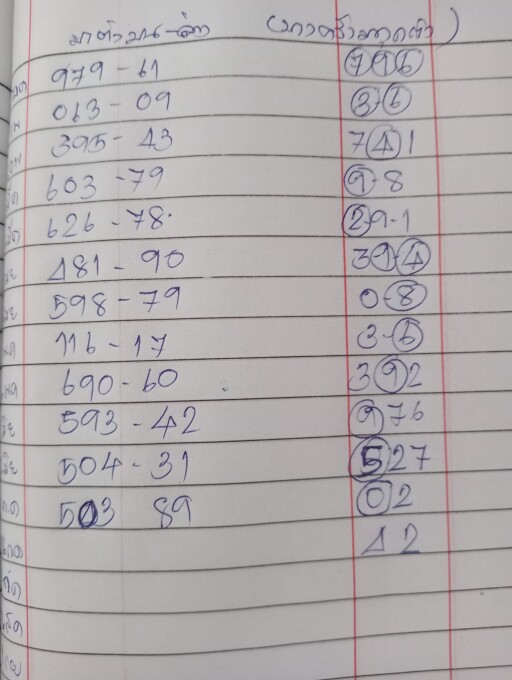 มาตัวบน-ล่าง
979 - 61 796
063 - 09 3-6
395 - 43 741
603 - 79 9-8
626 - 78 2-9-1
481 - 90 39-4
598 - 79 0-8
116 - 17 3-6
690 - 60 392
593 - 42 976
504 - 31 527
503 89 02
42